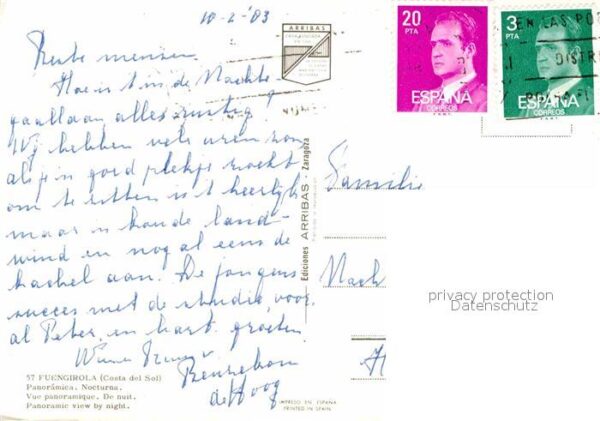 10-2-'83
Beste mensen
Hoe is 't in de Nachte-
gaallaan alles rustig?
Wij hebben vele uren zon
als je 'n goed plekje zoekt
om te zitten is 't heerlijk
maar 'n koude land-
wind en nog al eens de
kachel aan. De jongens
succes met de studie, voor
al Peter, en hart. groeten
de Hoog
Familie
Nach
57 FUENGIROLA (Costa del Sol)
Panorámica. Nocturna.
Vue panoramique. De nuit.
Panoramic view by night.
ARRIBAS
Ediciones ARRIBAS Zaragoza
IMPRESO EN ESPAÑA
PRINTED IN SPAIN
20
PTA
ESPAÑA
CORREOS
3
PTA
ESPAÑA
CORREOS
EN LAS PO
DISTR
POSTAL
privacy protection
Datenschutz